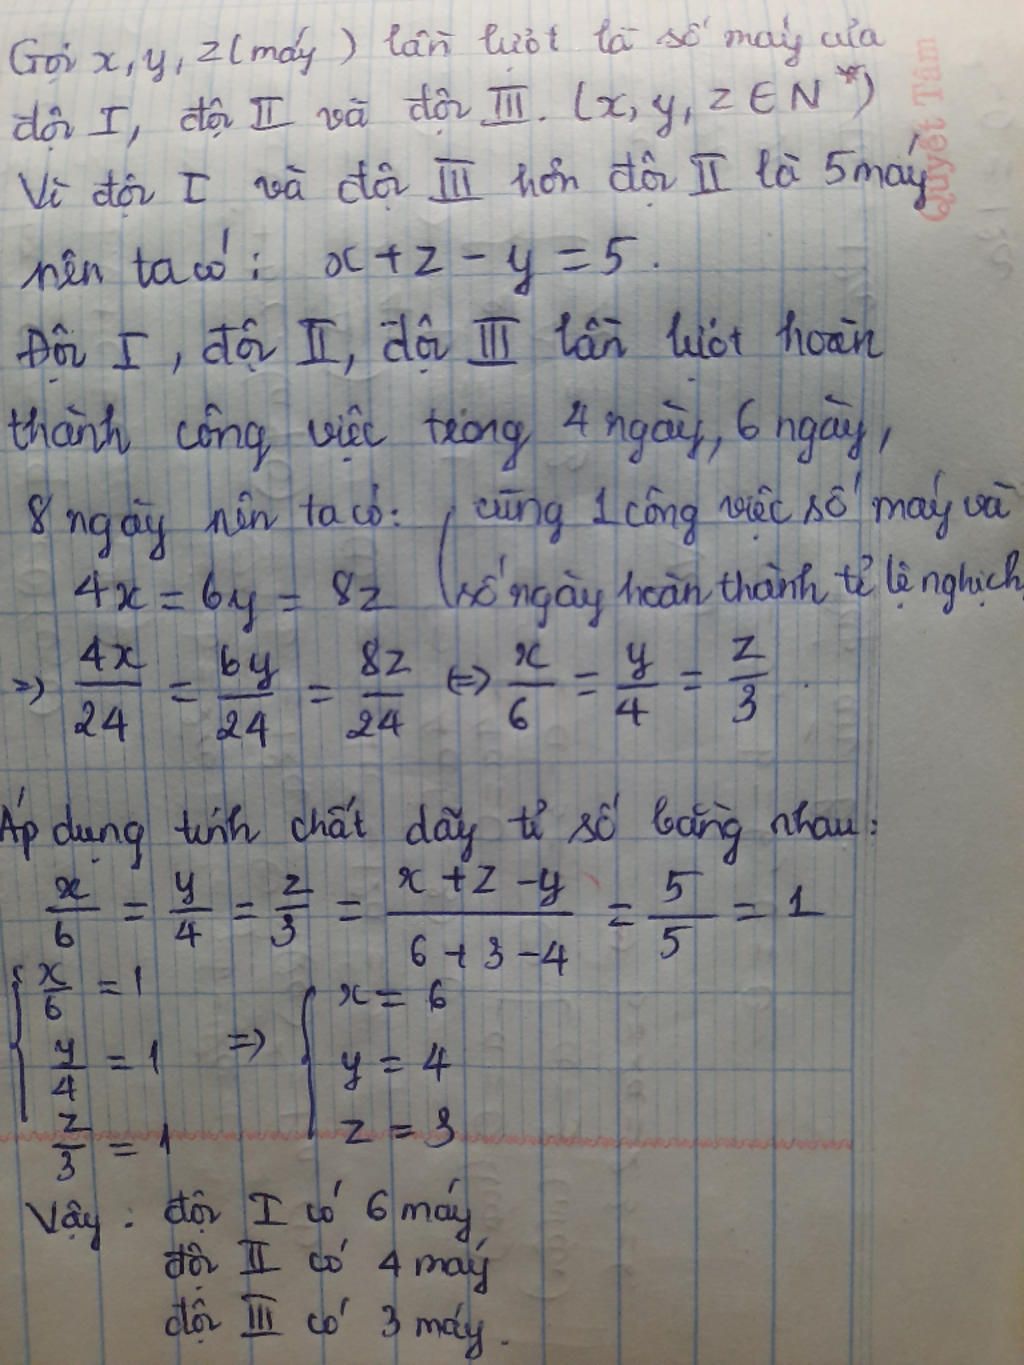 Gọi x, y, z (máy) lần lượt là số máy của
đội I, đội II và đội III. (x, y, z ∈ N*)
Quyết Tâm
Vì đội I và đội III hơn đội II là 5 máy
nên ta có: x + z - y = 5.
Đội I, đội II, đội III lần lượt hoàn
thành công việc trong 4 ngày, 6 ngày,
8 ngày nên ta có: ( cùng 1 công việc số máy và
4x = 6y = 8z số ngày hoàn thành tỉ lệ nghịch)
=> 4x/24 = 6y/24 = 8z/24 <=> x/6 = y/4 = z/3.
Áp dụng tính chất dãy tỉ số bằng nhau:
x/6 = y/4 = z/3 = (x + z - y)/(6 + 3 - 4) = 5/5 = 1
{ x/6 = 1 => { x = 6
y/4 = 1 y = 4
z/3 = 1 z = 3
Vậy: đội I có 6 máy
đội II có 4 máy
đội III có 3 máy.